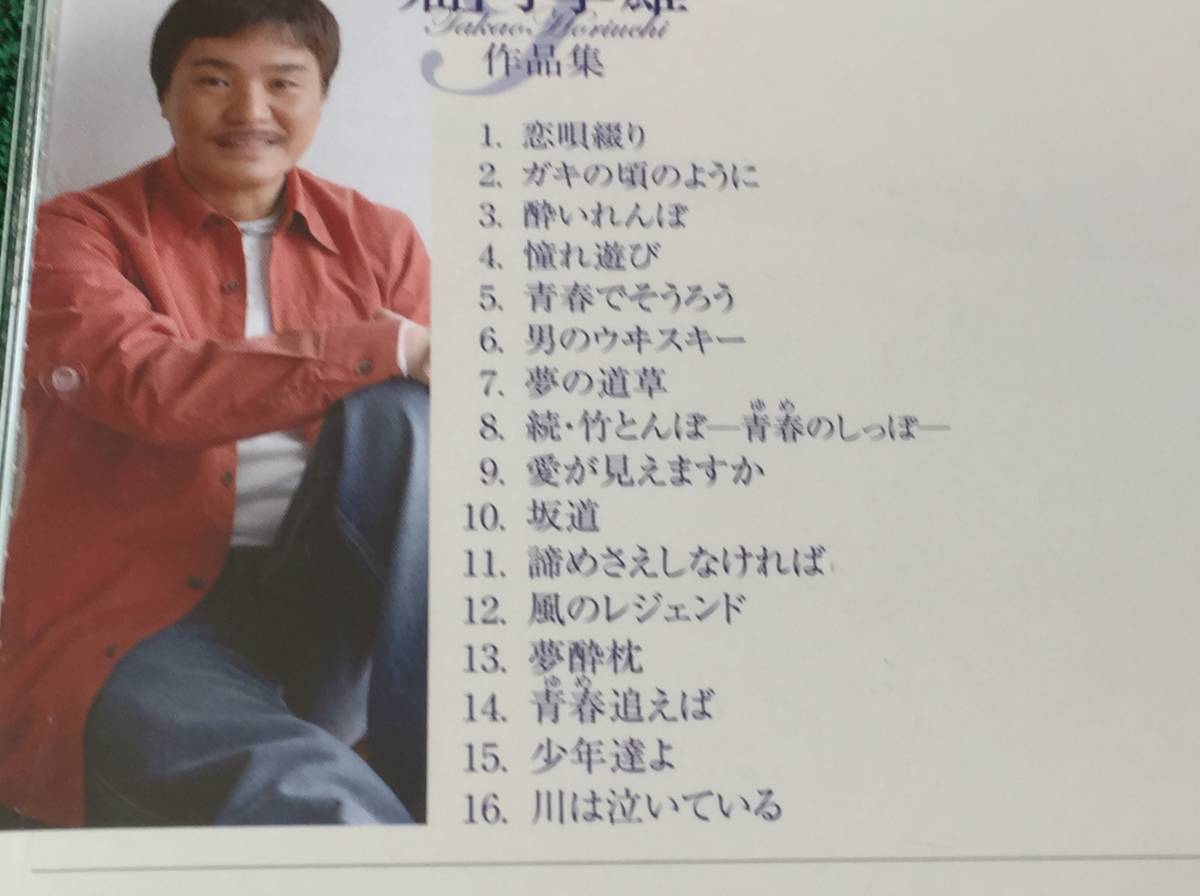 堀内孝雄
Takao Horiuchi
作品集
1. 恋唄綴り
2. ガキの頃のように
3. 酔いれんぼ
4. 憧れ遊び
5. 青春でそうろう
6. 男のウヰスキー
7. 夢の道草
8. 続・竹とんぼ—青春(ゆめ)のしっぽ—
9. 愛が見えますか
10. 坂道
11. 諦めさえしなければ
12. 風のレジェンド
13. 夢酔枕
14. 青春(ゆめ)追えば
15. 少年達よ
16. 川は泣いている